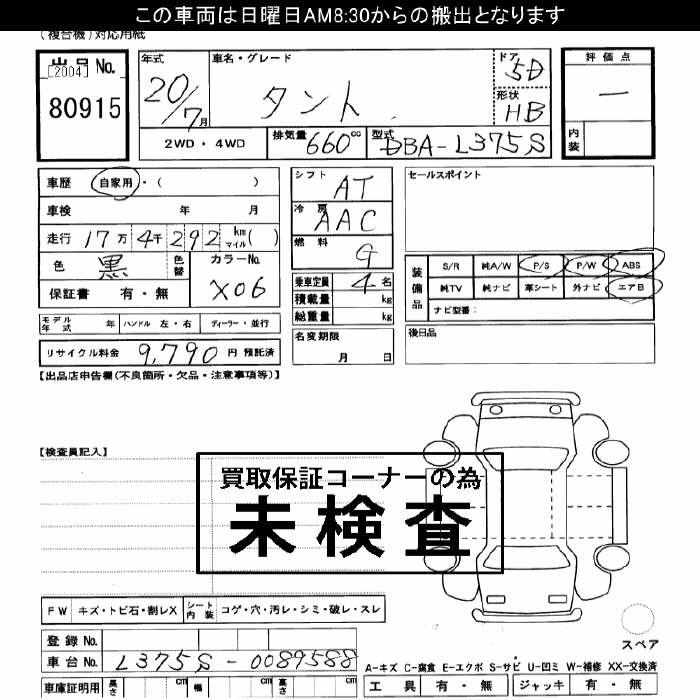 この車両は日曜日AM8:30からの搬出となります
(複合機)対応用紙
出品No.
[2004]
80915
年式
20/7月
車名・グレード
タント
ドア
5D
形状
HB
評価点
—
内装
2WD・4WD
排気量 660cc
型式 DBA-L375S
車歴 自家用・( )
車検 年 月
走行 17万4千292 km マイル( )
色 黒 色替
カラーNo.
X06
保証書 有・無
シフト AT
冷房 AAC
燃料 G
乗車定員 4名
積載量 kg
総重量 kg
セールスポイント
装備品
S/R 純A/W P/S P/W ABS
純TV 純ナビ 革シート 外ナビ エアB
ナビ型番:
モデル年式 年 ハンドル 左・右 ディーラー・並行
名変期限
月 日
後日品
リサイクル料金 9,790 円 預託済
【出品店申告欄(不良箇所・欠品・注意事項等)】
【検査員記入】
買取保証コーナーの為
未検査
FW キズ・トビ石・割レX シート内装 コゲ・穴・汚レ・シミ・破レ・スレ
スペア
登録No.
車台No. L375S-0089588
A-キズ C-腐食 E-エクボ S-サビ U-凹ミ W-補修 XX-交換済
車庫証明用 長さ cm 幅 cm 高さ cm
工具 有・無 ジャッキ 有・無